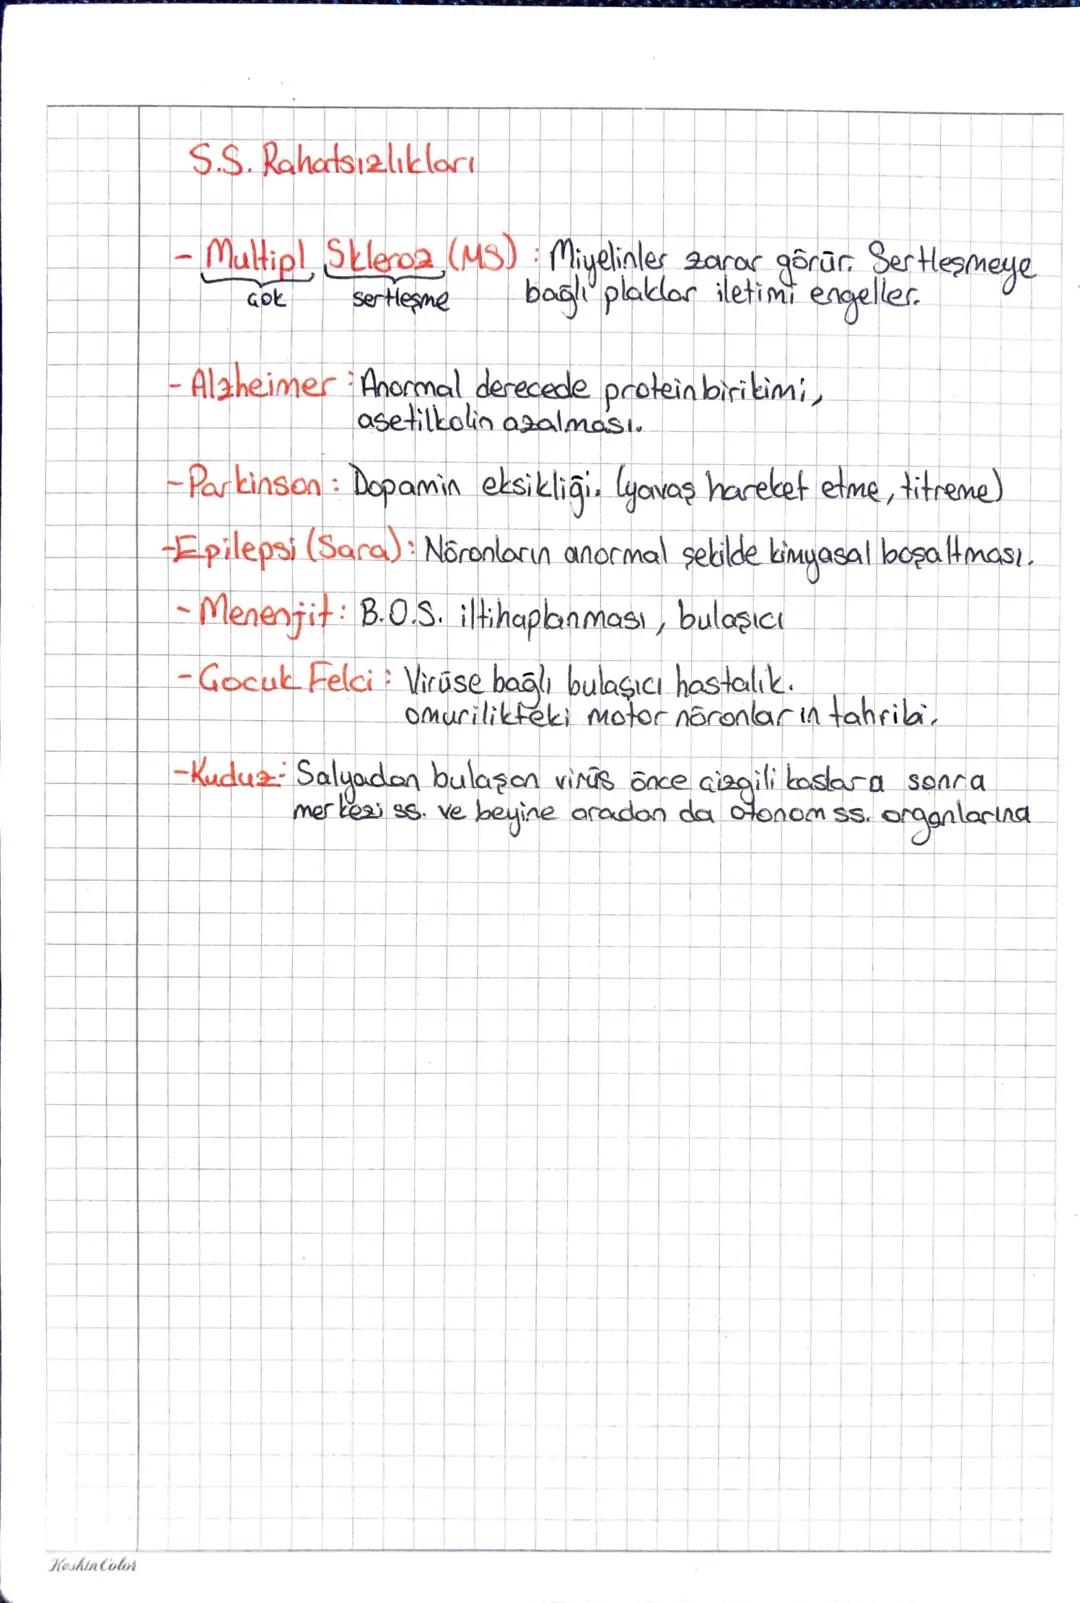 S.S. Rahatsızlıkları
- Multipl Skleroz (MS) : Miyelinler zarar görür. Sertleşmeye
çok sertleşme bağlı plaklar iletimi engeller.
- Alzheimer : Anormal derecede protein birikimi,
asetilkolin azalması.
- Parkinson : Dopamin eksikliği. (yavaş hareket etme, titreme)
- Epilepsi (Sara) : Nöronların anormal şekilde kimyasal boşaltması.
- Menenjit : B.O.S. iltihaplanması, bulaşıcı
- Çocuk Felci : Virüse bağlı bulaşıcı hastalık.
omurilikteki motor nöronların tahribi.
- Kuduz : Salyadan bulaşan virüs önce çizgili kaslara sonra
merkezi ss. ve beyine oradan da otonom ss. organlarına
KeskinColor